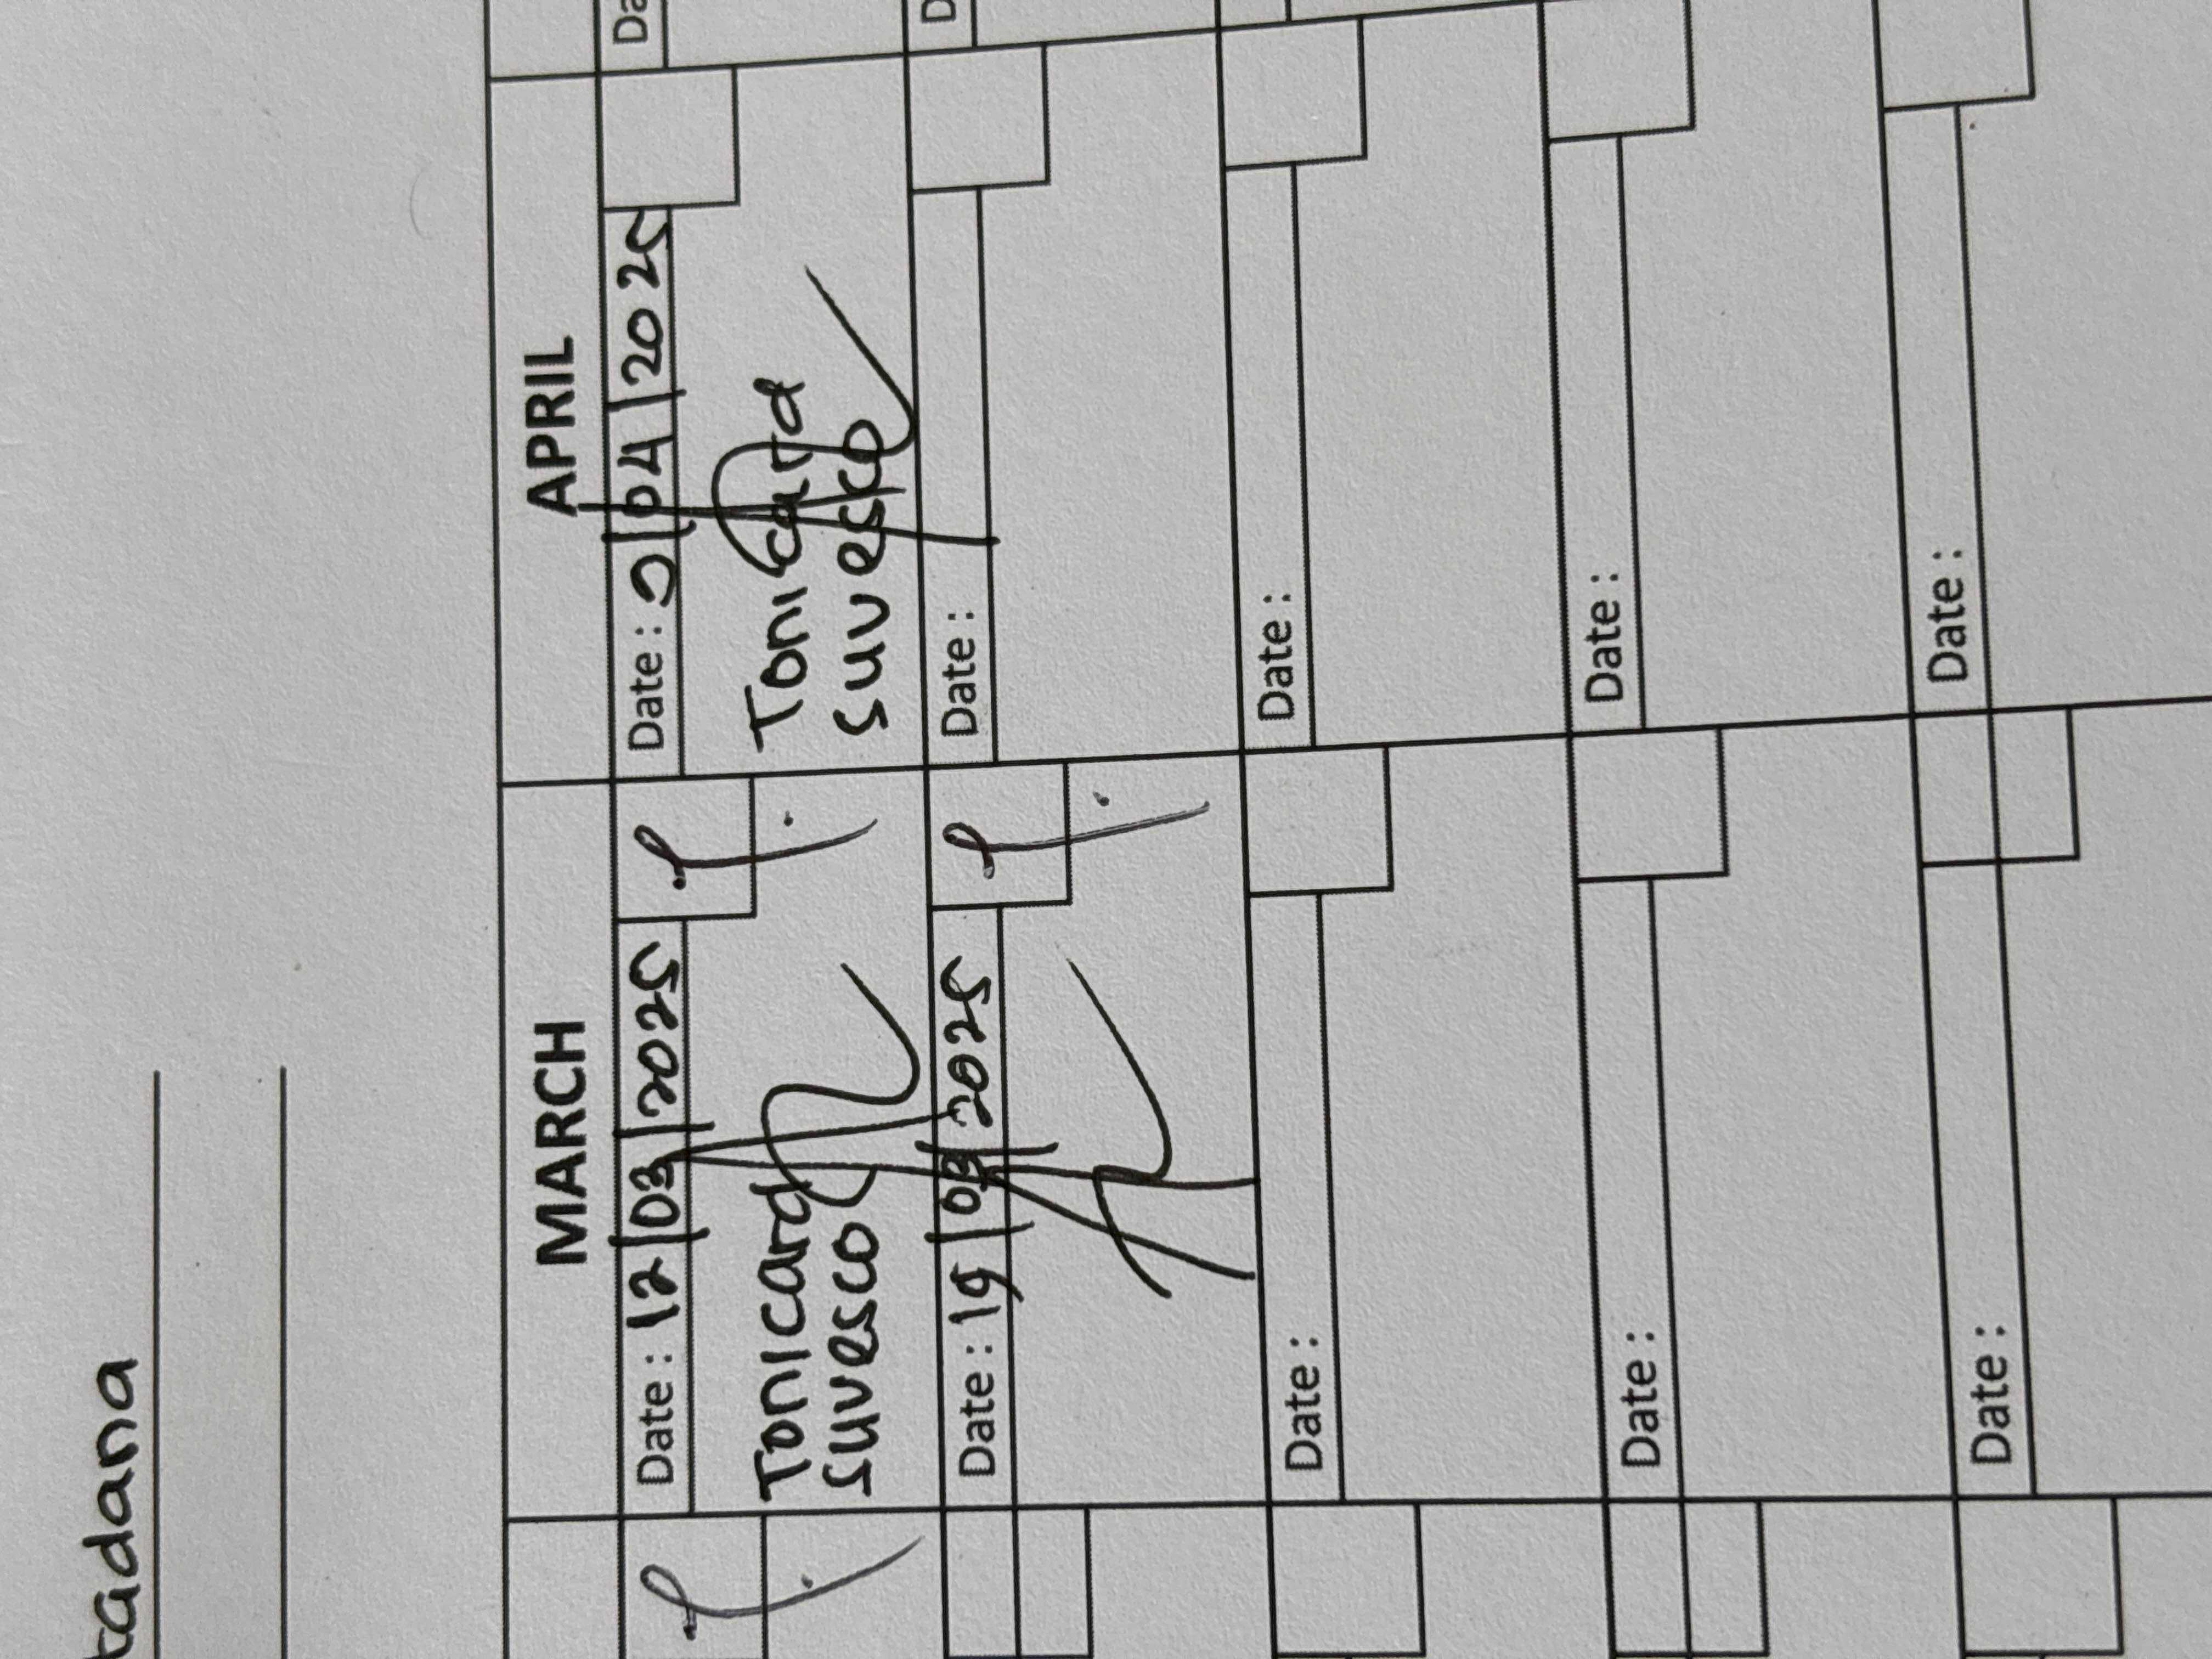 tadana
MARCH
APRIL
Date : 12/03/2025
Tonicard
suvesco
Date : 19/03/2025
Date :
Date :
Date :
Date : /04/2025
Tonicard
suvesco
Date :
Date :
Date :
Date :
Da
D